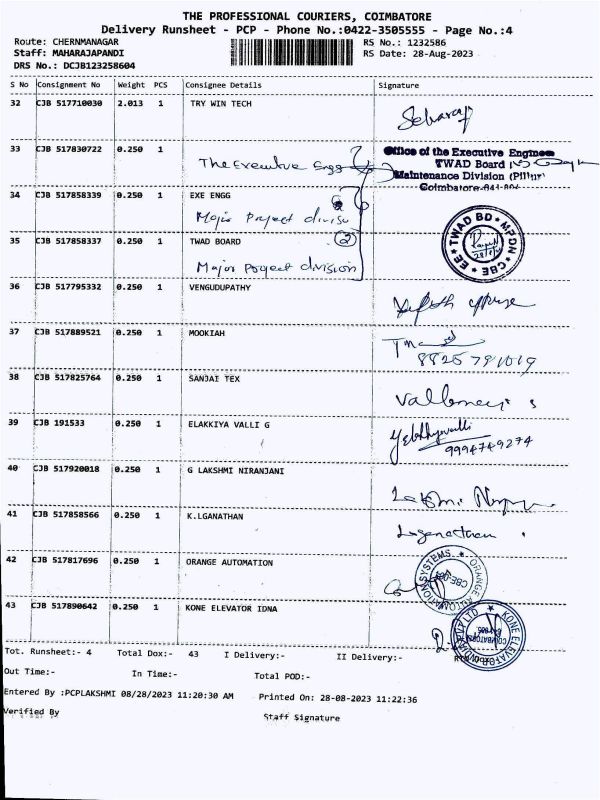 THE PROFESSIONAL COURIERS, COIMBATORE
Delivery Runsheet - PCP - Phone No.:0422-3505555 - Page No.:4
Route: CHERNMANAGAR
RS No.: 1232586
Staff: MAHARAJAPANDI
RS Date: 28-Aug-2023
DRS No.: DCJB123258604
S No Consignment No Weight PCS Consignee Details Signature
32 CJB 517710030 2.013 1 TRY WIN TECH
33 CJB 517830722 0.250 1
The Executive Engg
Office of the Executive Engineer
TWAD Board
Maintenance Division (Pillur)
Coimbatore-641
34 CJB 517858339 0.250 1 EXE ENGG
Major Project
35 CJB 517858337 0.250 1 TWAD BOARD 2
Major Project division
EE ★ TWAD BD ★ MPDN ★ CBE
36 CJB 517795332 0.250 1 VENGUDUPATHY
37 CJB 517889521 0.250 1 MOOKIAH
38 CJB 517825764 0.250 1 SANJAI TEX
39 CJB 191533 0.250 1 ELAKKIYA VALLI G
9994749274
40 CJB 517920018 0.250 1 G LAKSHMI NIRANJANI
41 CJB 517858566 0.250 1 K.LGANATHAN
Loganathan
42 CJB 517817696 0.250 1 ORANGE AUTOMATION
ORANGE AUTOMATION SYSTEMS
43 CJB 517890642 0.250 1 KONE ELEVATOR IDNA
KONE ELEVATOR
Tot. Runsheet:- 4 Total Dox:- 43 I Delivery:- II Delivery:-
Out Time:- In Time:- Total POD:-
Entered By :PCPLAKSHMI 08/28/2023 11:20:30 AM Printed On: 28-08-2023 11:22:36
Verified By Staff Signature